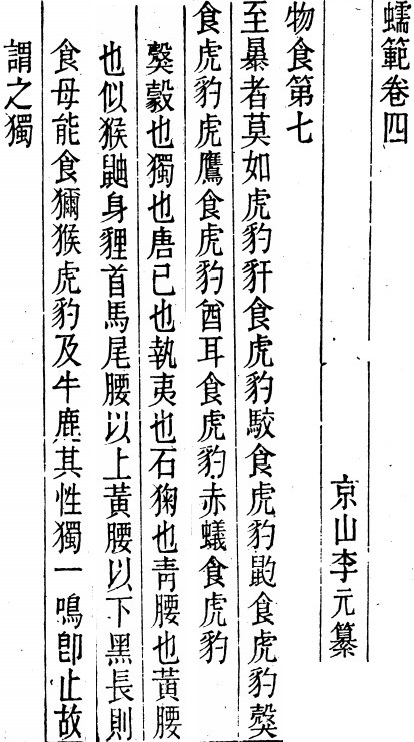 蠕範卷四
京山李元纂
物食第七
至暴者莫如虎豹豻食虎豹駮食虎豹食虎豹
食虎豹虎鷹食虎豹酋耳食虎豹赤蟻食虎豹
豰也獨也唐已也執夷也石也青腰也黃腰
也似猴鼬身貍首馬尾腰以上黃腰以下黑長則
食母能食獼猴虎豹及牛鹿其性獨一鳴卽止故
謂之獨